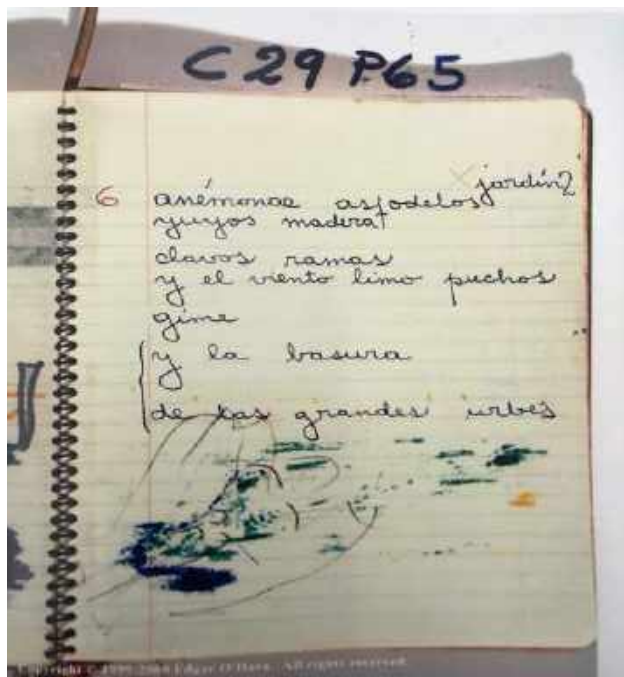 C 29 P65
x jardín2
6 anémonae asfodelos
yuyos madera
clavos ramas
y el viento limo puchos
gime
y la basura
de las grandes urbes
Copyright © 1999-2004 Edgar O'Hara. All rights reserved.